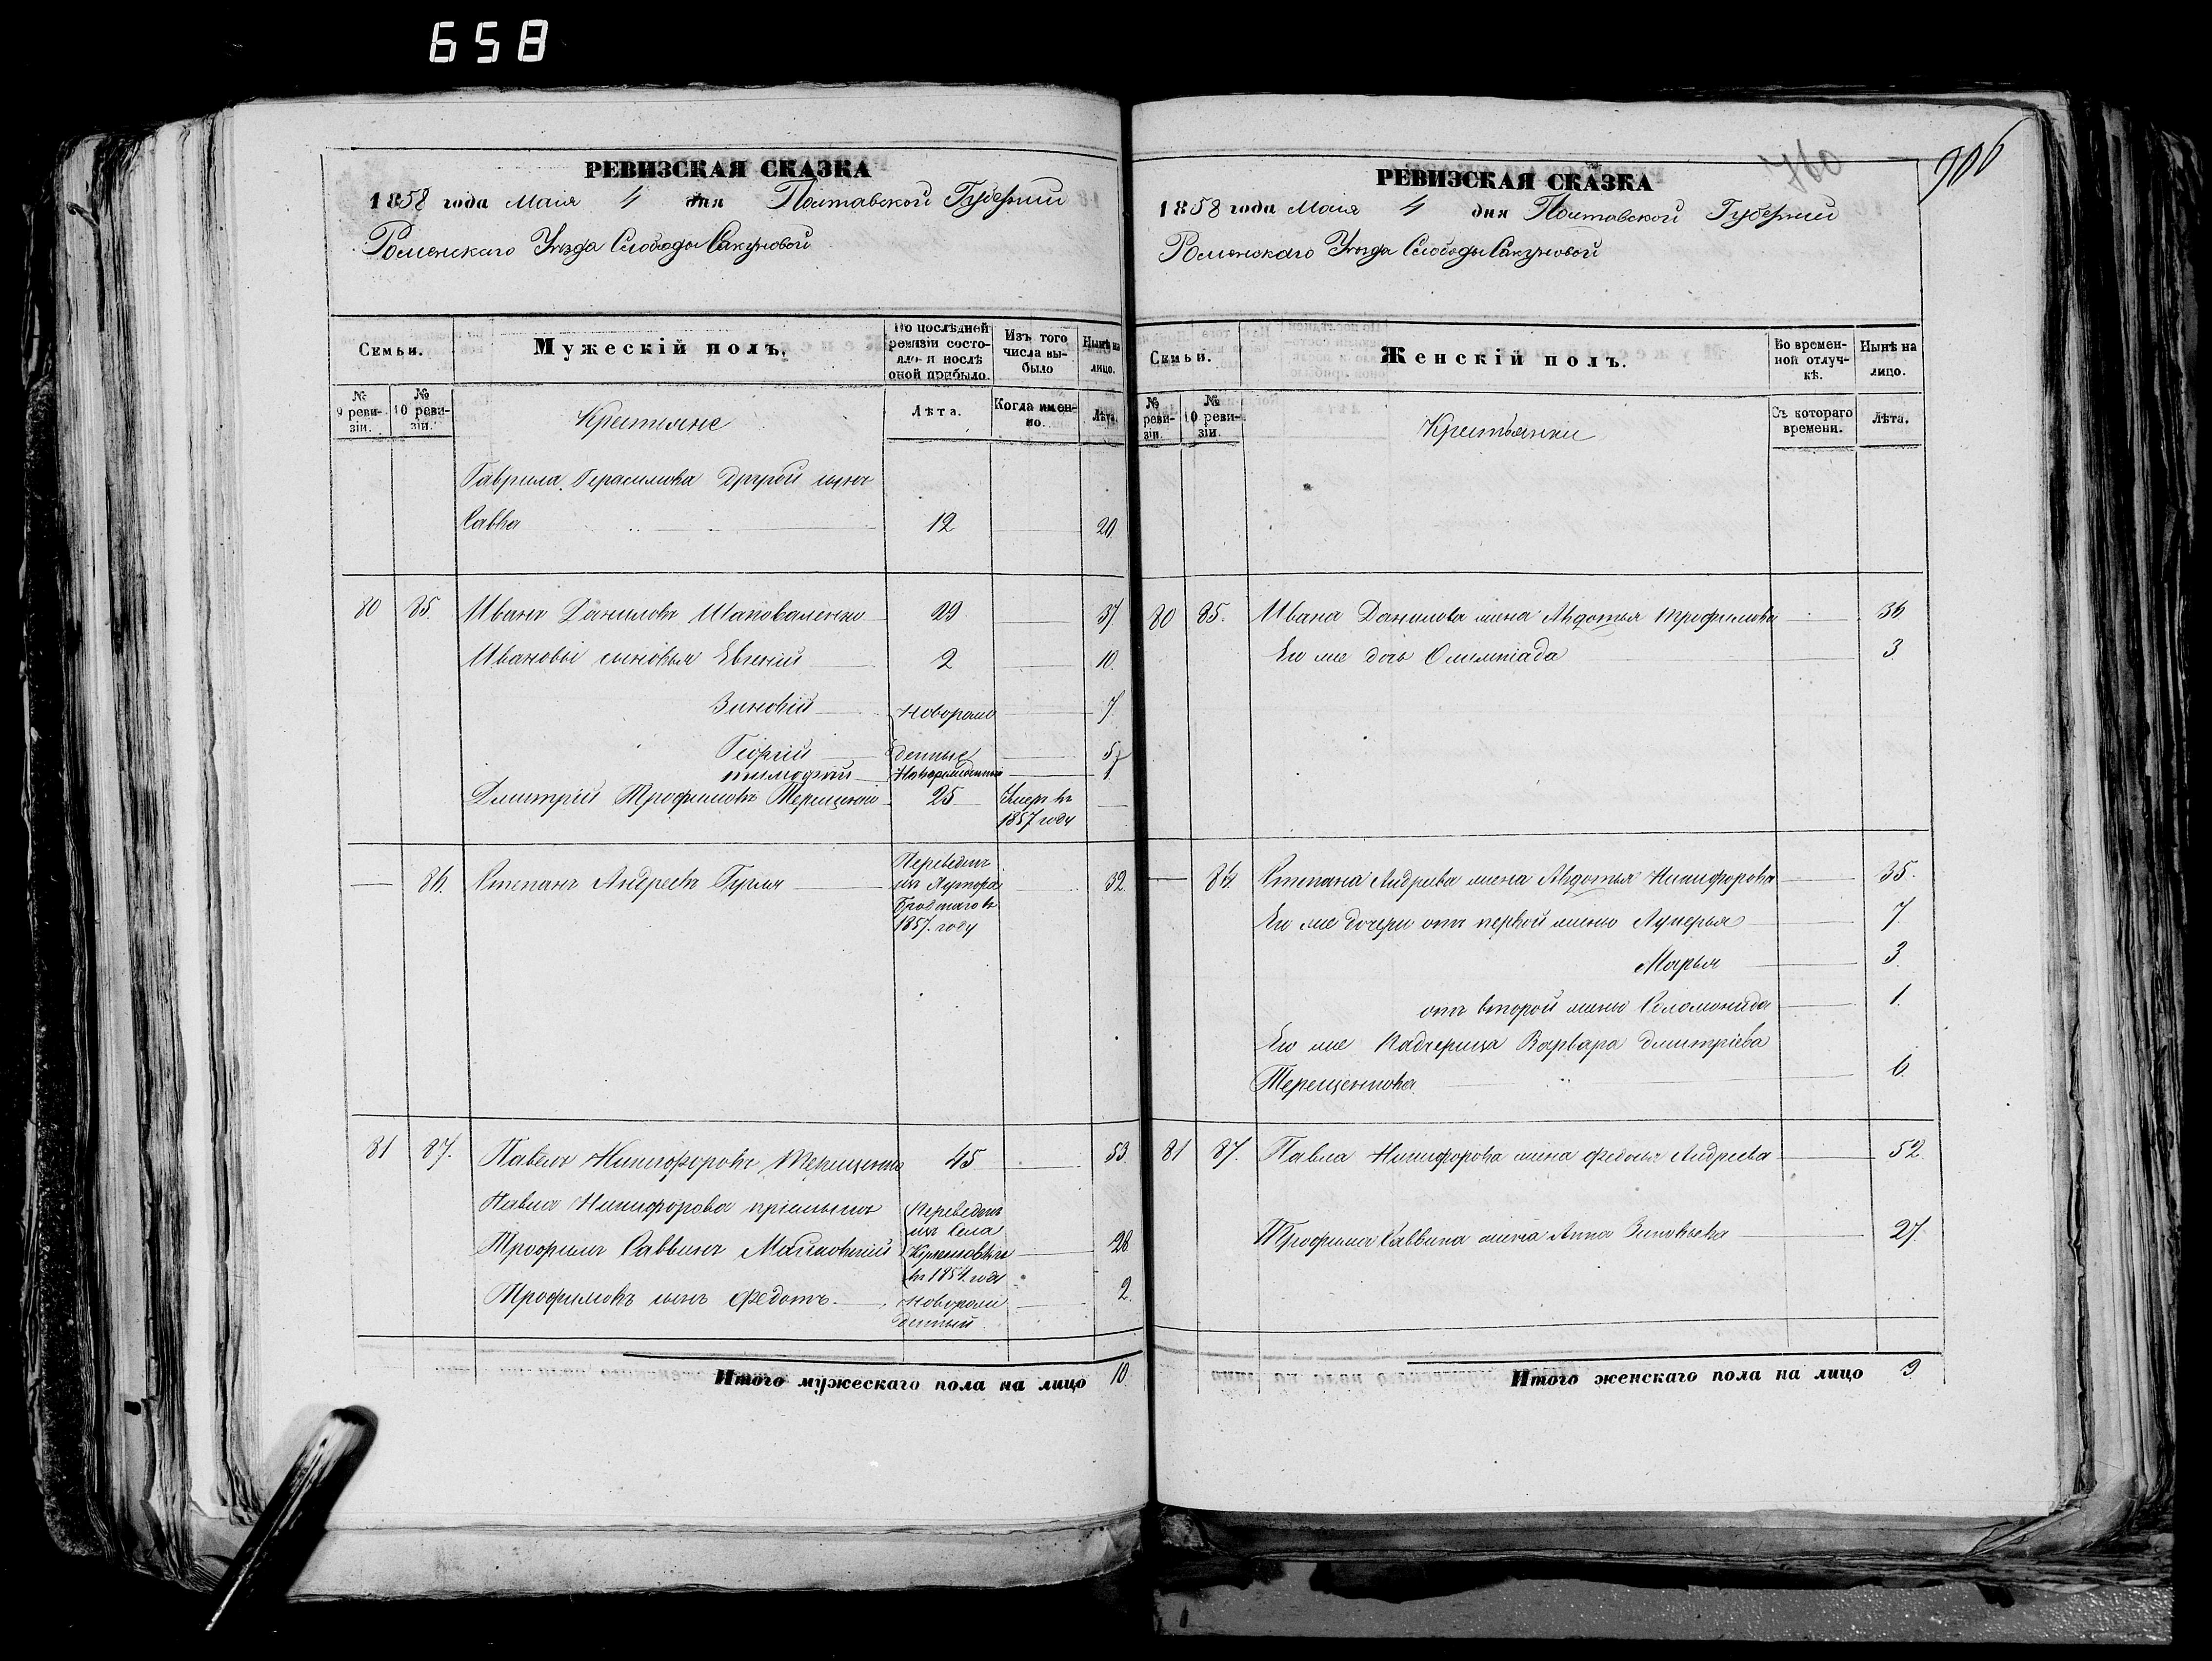 658
РЕВИЗСКАЯ СКАЗКА
1858 года Маія 4 дня Полтавской Губерніи
Роменскаго Уѣзда Слободы Сакуновой
Семьи.
Мужескій полъ.
По послѣдней ревизіи состояло и послѣ оной прибыло.
Изъ того числа выбыло
Нынѣ на лицо.
№ 9 ревизіи.
№ 10 ревизіи.
Крестьяне
Лѣта.
Когда именно.
Лѣта.
Гаврила Герасимова другой сынъ
Савва 12 20
80 85. Иванъ Даниловъ Шаповаленко 29 37
Ивановы сыновья Евгеній 2 10.
Зиновій Новорож 7
Георгій денные 5
Тимофей Новорожденный 1
Дмитрій Трофимовъ Терещенко 25 Умеръ въ
1857 году
86. Степанъ Андреевъ Переведенъ
изъ Хутора 32
въ
1857. году
81 87. Павелъ Никифоровъ Терещенко 45 53.
Павла Никифорова пріемышъ Переведенъ
изъ Села
Трофимъ Саввинъ 28
въ 1854. году
Трофимовъ сынъ Федотъ Новорож 2.
денный
Итого мужескаго пола на лицо 10.
760
906
РЕВИЗСКАЯ СКАЗКА
1858 года Маія 4 дня Полтавской Губерніи
Роменскаго Уѣзда Слободы Сакуновой
Семьи.
Женскій полъ.
Во временной отлучкѣ.
Нынѣ на лицо.
№ ревизіи.
№ 10 ревизіи.
Крестьянки
Съ котораго времени.
Лѣта.
80 85. Ивана Данилова жена Авдотья Трофимова 36
Его же дочь Олимпіада 3.
86. Степана Андреева жена Авдотья Никифорова 35.
Его же дочери отъ первой жены Лукерья 7.
Марья 3.
отъ второй жены Соломонида 1.
Его же Падчерица Варвара Дмитріева
Терещенкова 6.
81 87. Павла Никифорова жена Федосья Андреева 52.
Трофима Саввина жена Анна Зиновьева 27.
Итого женскаго пола на лицо 9